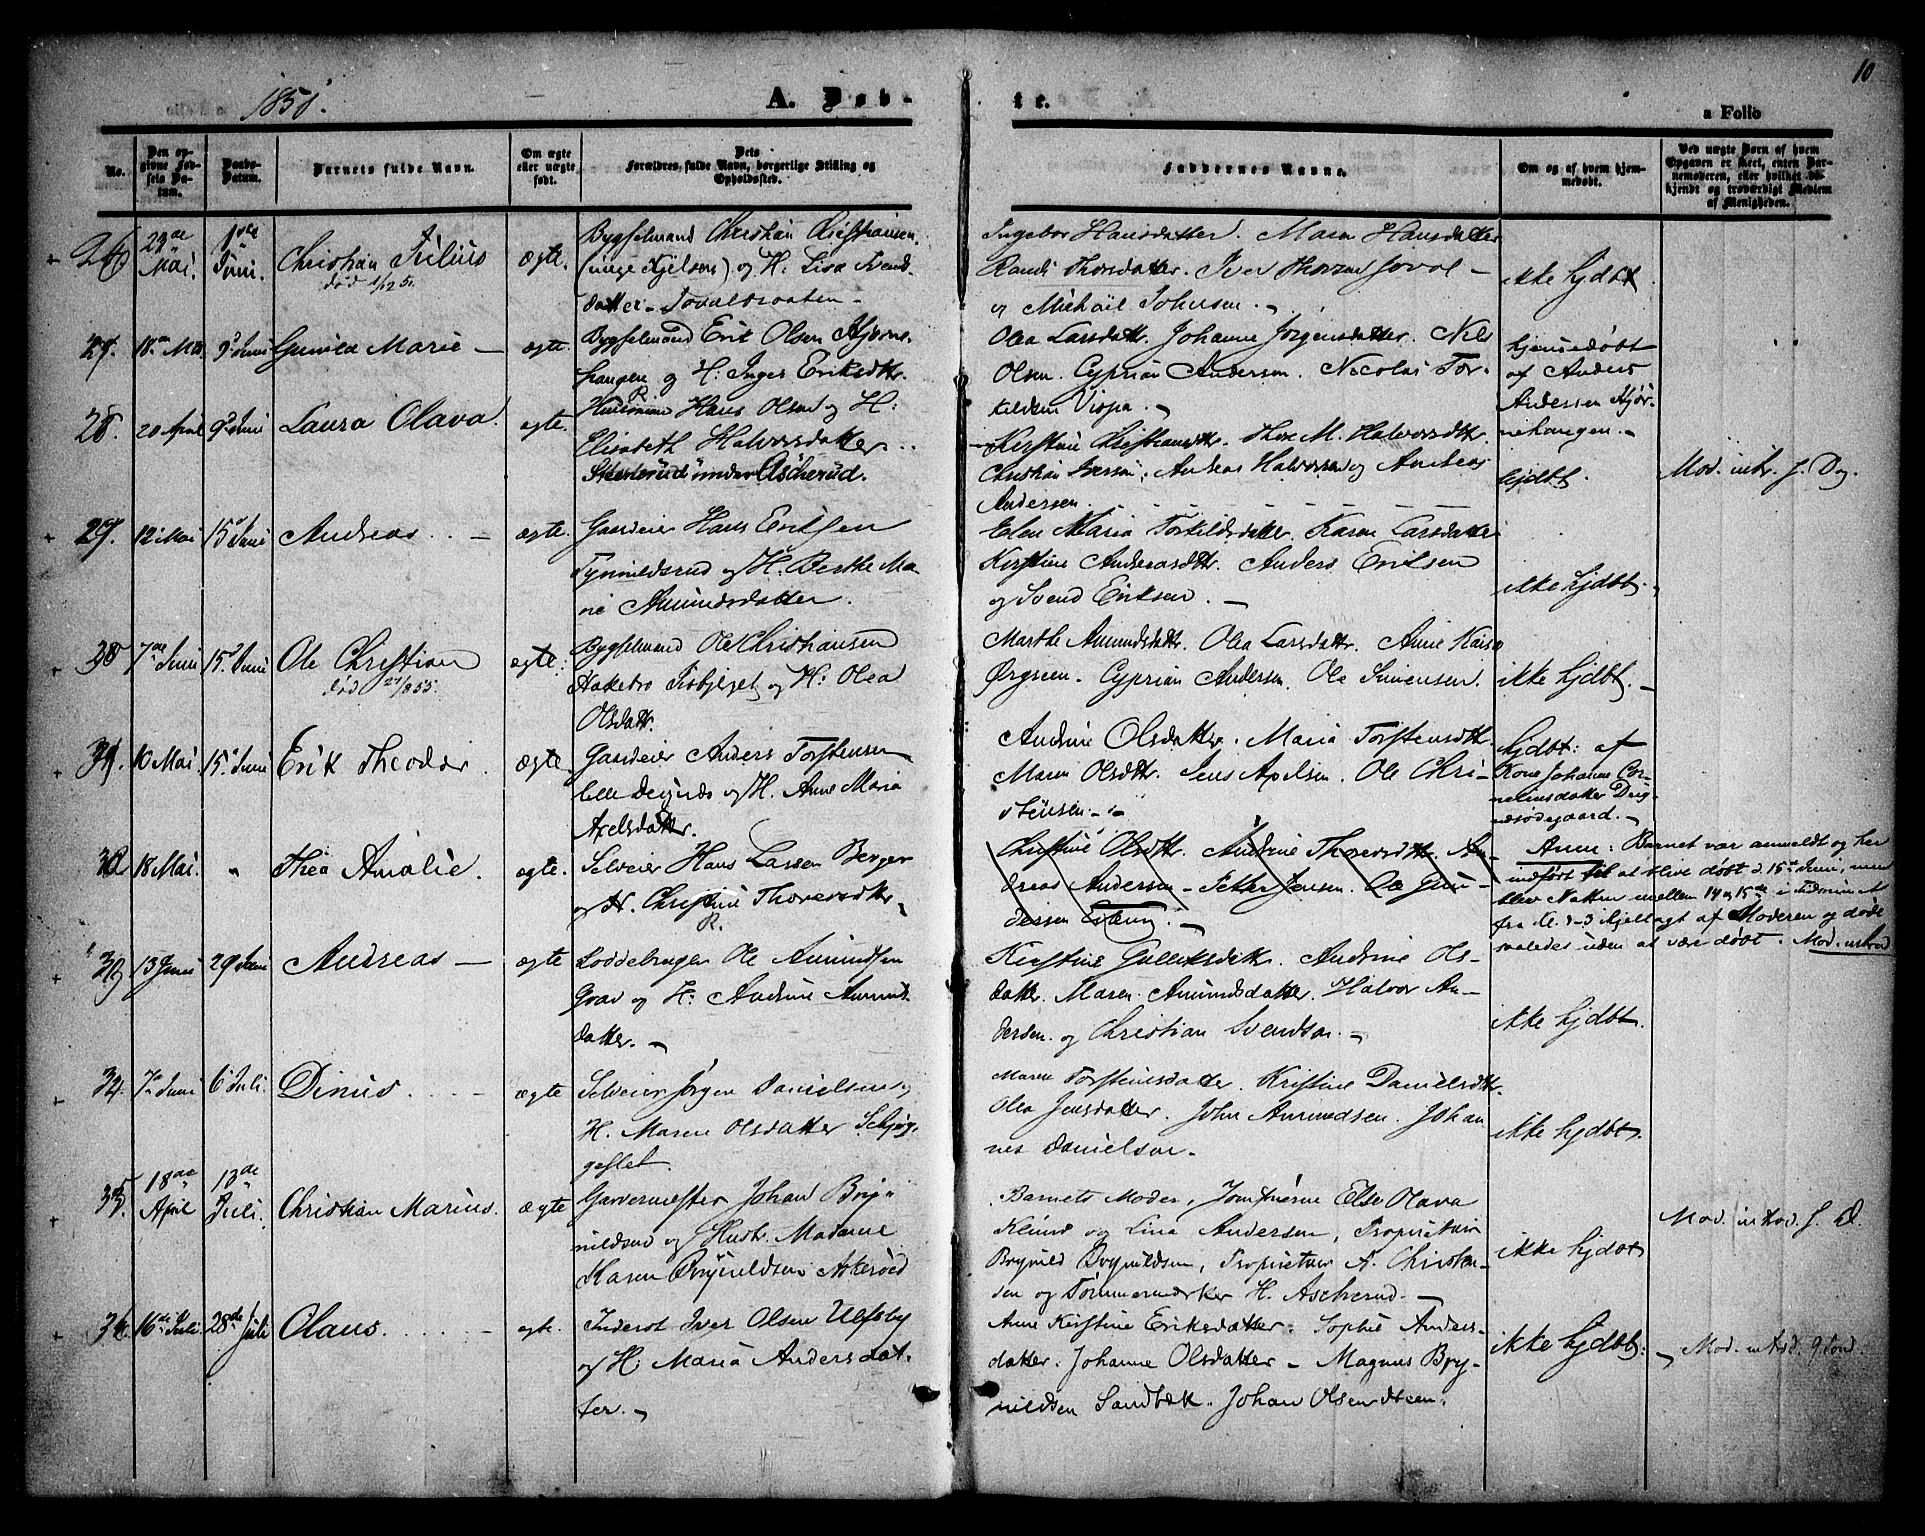 1851.
A. Døb-
te.
10
a Folio
No.
Den op-
givne Fød-
sels Da-
tum.
Daabs-
Datum.
Barnets fulde Navn.
Om ægte
eller uægte
født.
Dets
Forældres fulde Navn, borgerlige Stilling og
Opholdssted.
Faddernes Navne.
Om og af hvem hjem-
medøbt.
Ved uægte Børn af hvem
Opgaven er skeet, enten Bar-
nemoderen, eller hvilket be-
kjendt og troværdigt Medlem
af Menigheden.
26
23de Mai.
1ste Juni.
Christian Julius
død
ægte.
Bygselmand Christian Christiansen
og H. Lisa Svends-
datter
Ingebor Hansdatter. Maren Hansdatter
Randi Thorsdatter. Iver
og Michael Johnsen.
ikke hjdbt.
27.
18de Mai
9de Juni
Gunild Marie
ægte.
Bygselmand Erik Olsen Kjerne-
haugen og H: Inger Eriksdtr.
Olea Larsdattr. Johanne Jörgensdatter. Nils
Olsen. Cyprian Andersen. Nicolai Tor-
kildsen Vispa.
hjemmedøbt
af Anders
Andersen Kjør-
nehaugen.
28.
20 April
9de Juni
Laura Olava.
ægte.
Huusmand Hans Olsen og H:
Elisabeth Halvorsdatter
under Ascherud.
Kirstine Christiansdtr. Thore M. Halvorsdtr.
Christian Iversen, Andreas Halvorsen og Andreas
Andersen.
hjdbt.
Mod. intr. f. D.
29.
12 Mai
15de Juni
Andreas
ægte.
Gaardeier Hans Eriksen
og H. Berthe Ma-
rie Amundsdatter.
Elen Maria Torkildsdatter. Karen Larsdatter
Kirstine Andreasdtr. Anders Eriksen
og Svend Eriksen.
ikke hjdbt.
30
7de Juni
15de Juni
Ole Christian
død 55.
ægte.
Bygselmand Ole Christiansen
og H: Olea
Olsdattr.
Marthe Amundsdattr. Olea Larsdattr. Anne Kaisa
Cyprian Andersen. Ole Simensen.
ikke hjdbt.
31.
10 Mai.
15de Juni
Erik Theodor.
ægte.
Gaardeier Anders Torstensen
og H. Anne Maria
Axelsdatter.
Andrine Olsdatter. Maria Torstensdtr.
Maren Olsdtr. Jens Axelsen. Ole Chri-
stensen.
hjdbt: af
Kone Johanne Cor-
neliusdatter
32
18 Mai.
"
Thea Amalie.
ægte.
Selveier Hans Larsen Berger
og H. Christine Thoresdtr.
Christine Olsdtr. Andrine Thoresdtr. An-
dreas Andersen. Petter Jensen. Ole Gun-
Anm: Barnet var anmeldt og her
indført til at blive døbt d. 15de Juni, men
blev Natten mellem 14 og 15de
fra Kl. 1-3 ihjellagt af Moderen og døde
saaledes uden at være døbt. Mod. introd
33
13 Juni
29 Juni
Andreas
ægte
Loddebruger Ole Amundsen
Grav og H: Andrine Amunds-
datter.
Kirstine Gulliksdattr. Andrine Ols-
datter. Maren Amundsdatter. Halvor An-
dersen og Christian Svendsen.
ikke hjdbt.
34.
7de Juni
6te Juli.
Dinus
ægte
Selveier Jørgen Danielsen og
H. Maren Olsdatter
Maren Torstensdatter. Kristine Danielsdtr.
Olea Jensdatter. John Amundsen. Johan-
nes Danielsen.
ikke hjdbt.
35.
18de April
13de Juli.
Christian Marius.
ægte
Garvermester Johan Bryn-
ildsen og Hustr. Madame
Karen Brynildsen Askerød
Barnets Moder, Jomfruerne Else Olava
Klund og Lina Andersen, Proprietair
Brynild Brynildsen, Proprietair A. Christen-
sen og Tømmermærker H. Ascherud.
ikke hjdbt
Mod. introd. f. D.
36.
16de Juli
28de Juli
Olaus.
ægte.
Inderst Iver Olsen Ulfsby
og H. Maria Andersdat-
ter.
Anne Kirstine Eriksdatter. Sophie Anders-
datter. Johanne Olsdatter. Magnus Bry-
nildsen Sandbæk. Johan Olsen
ikke hjdbt.
Mod. introd.